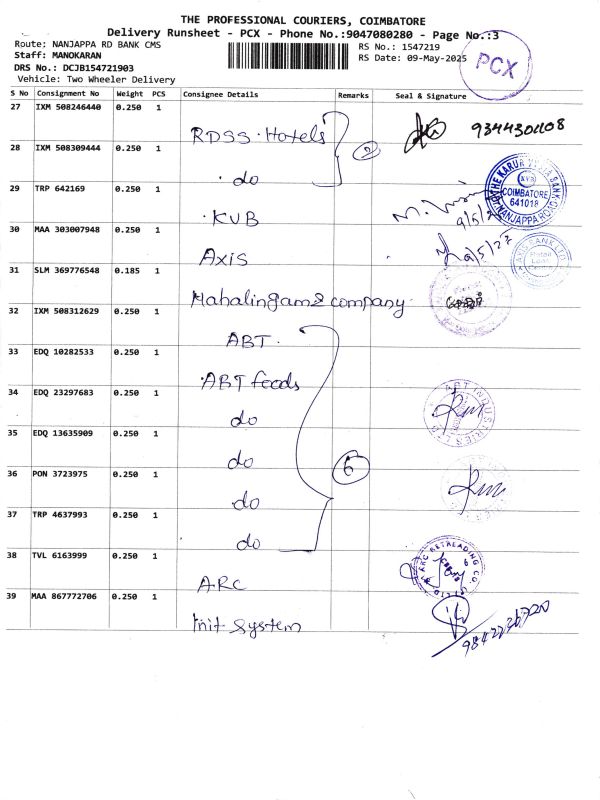 THE PROFESSIONAL COURIERS, COIMBATORE
Delivery Runsheet - PCX - Phone No.:9047080280 - Page No.:3
Route: NANJAPPA RD BANK CMS
RS No.: 1547219
Staff: MANOKARAN
RS Date: 09-May-2025
DRS No.: DCJB154721903
Vehicle: Two Wheeler Delivery
PCX
S No Consignment No Weight PCS Consignee Details Remarks Seal & Signature
27 IXM 508246440 0.250 1 RDSS Hotels 2 9344301108
28 IXM 508309444 0.250 1 do
29 TRP 642169 0.250 1 KVB
THE KARUR VYSYA BANK
KVB
COIMBATORE
641018
NANJAPPA ROAD
30 MAA 303007948 0.250 1 Axis
AXIS BANK LTD
31 SLM 369776548 0.185 1 Mahalingam & company
32 IXM 508312629 0.250 1 ABT
33 EDQ 10282533 0.250 1 ABT foods
34 EDQ 23297683 0.250 1 do
ABT INDUSTRIES LTD
35 EDQ 13635909 0.250 1 do
36 PON 3723975 0.250 1 do 6
37 TRP 4637993 0.250 1 do
38 TVL 6163999 0.250 1 ARC
ARC RETREADING CO.
39 MAA 867772706 0.250 1 Init System
9842236720